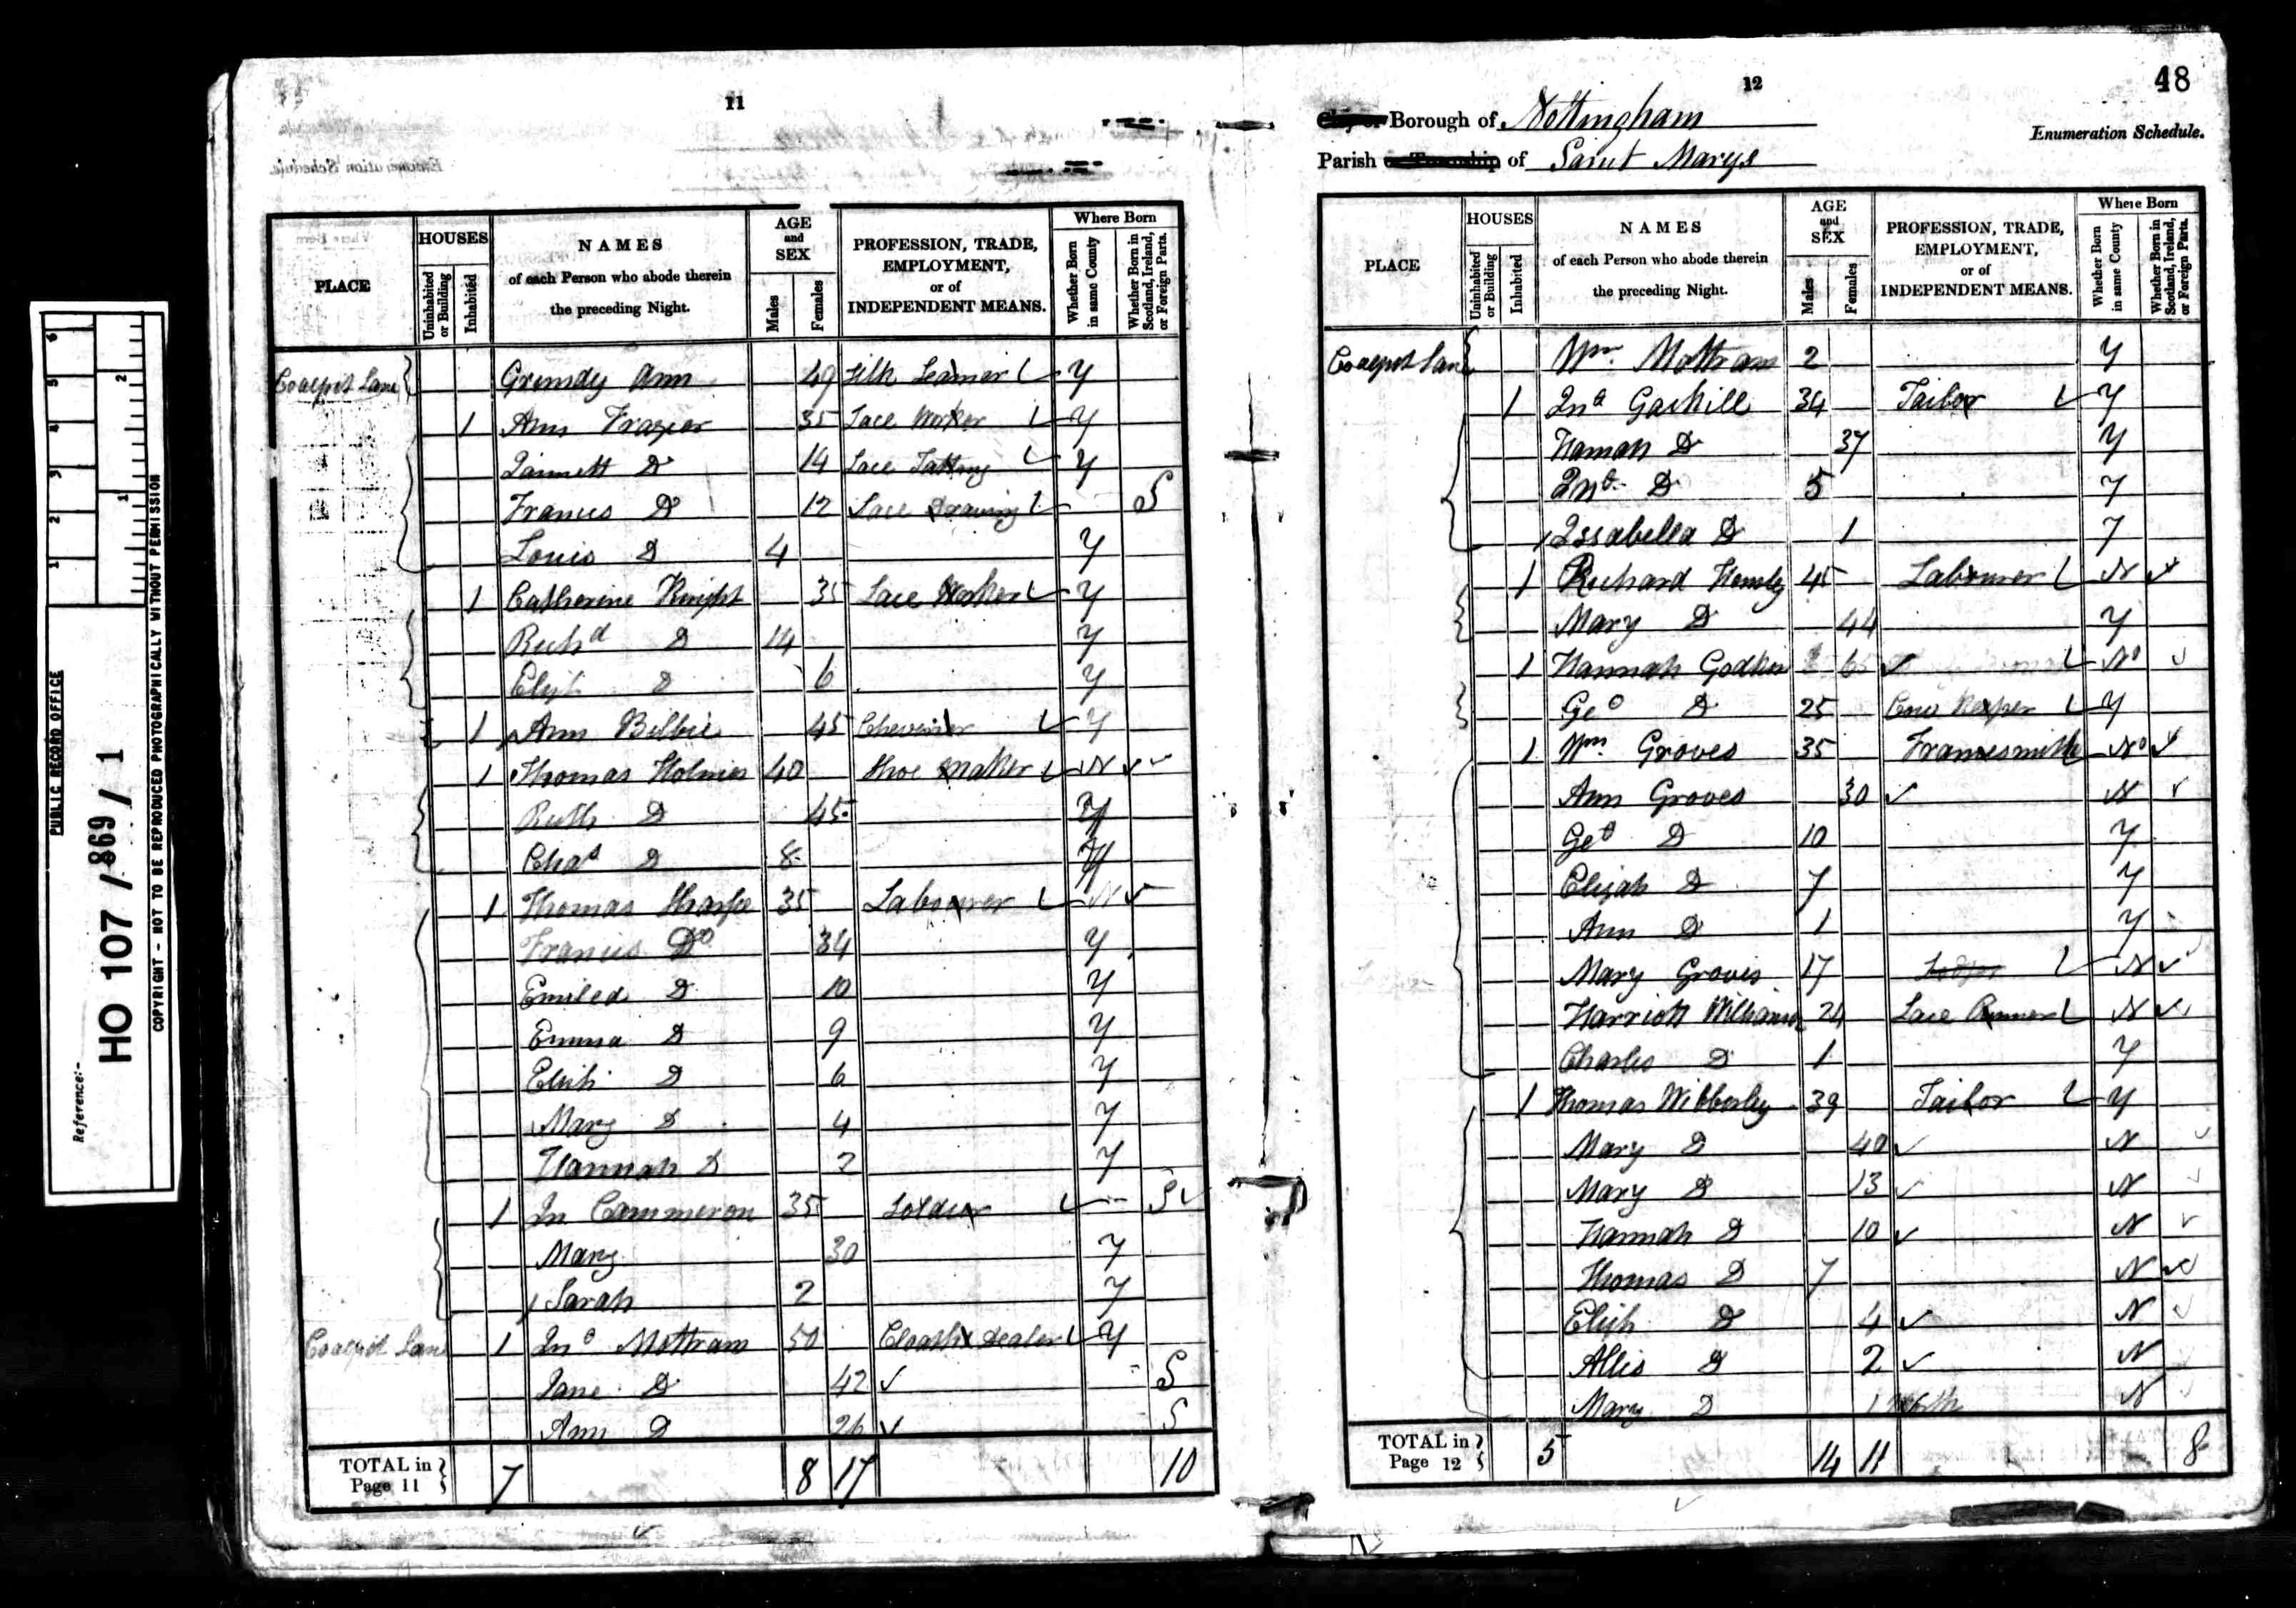 PUBLIC RECORD OFFICE
Reference:-
HO 107 / 869 / 1
COPYRIGHT - NOT TO BE REPRODUCED PHOTOGRAPHICALLY WITHOUT PERMISSION
11
PLACE
HOUSES
Uninhabited or Building
Inhabited
NAMES
of each Person who abode therein
the preceding Night.
AGE and SEX
Males
Females
PROFESSION, TRADE,
EMPLOYMENT,
or of
INDEPENDENT MEANS.
Where Born
Whether Born in same County
Whether Born in Scotland, Ireland, or Foreign Parts.
Coalpit Lane Grundy Ann 49 Silk Y
1 Ann Frazier 35 Lace Worker Y
Jannett Do 14 Lace Tatting Y
Francis Do 12 Lace Drawing S
Louis D 4 Y
1 Catherine Knight 35 Lace Worker Y
Richd D 14 Y
Eliz D 6 Y
1 Ann Bilbie 45 Chevener Y
1 Thomas Holmes 40 Shoe Maker N
Ruth D 45 Y
Chas D 8 Y
1 Thomas Sharpe 35 Labourer N
Francis Do 34 Y
Emiled D 10 Y
Emma D 9 Y
Elizh D 6 Y
Mary D 4 Y
Hannah D 2 Y
1 Jn Cammeron 35 Soldier S
Mary 30 Y
Sarah 2 Y
Coalpit Lane 1 Jno Mottram 50 Cloaths Dealer Y
Jane D 42 S
Ann D 26 S
TOTAL in Page 11 7 8 17 10
12
48
City or Borough of Nottingham
Enumeration Schedule.
Parish or Township of Saint Marys
PLACE
HOUSES
Uninhabited or Building
Inhabited
NAMES
of each Person who abode therein
the preceding Night.
AGE and SEX
Males
Females
PROFESSION, TRADE,
EMPLOYMENT,
or of
INDEPENDENT MEANS.
Where Born
Whether Born in same County
Whether Born in Scotland, Ireland, or Foreign Parts.
Coalpit Lane Wm. Mottram 2 Y
1 Jno Gaskill 34 Tailor Y
Hanah D 37 Y
Jno D 5 Y
Issabella D 1 Y
1 Richard 45 Labourer N
Mary D 44 Y
1 Hannah Godkin 65 No
Geo D 25 Cow Keeper Y
1 Wm Groves 35 Framesmith No
Ann Groves 30 N
Geo D 10 Y
Elizah D 7 Y
Ann D 1 Y
Mary Groves 17 Lodger N
Harriott Williamson 24 Lace Runner N
Charles D 1 Y
1 Thomas Wibberley 39 Tailor Y
Mary D 40 N
Mary D 13 N
Hannah D 10 N
Thomas D 7 N
Elizh D 4 N
Allis D 2 N
Mary D 1 N
TOTAL in Page 12 5 14 11 8